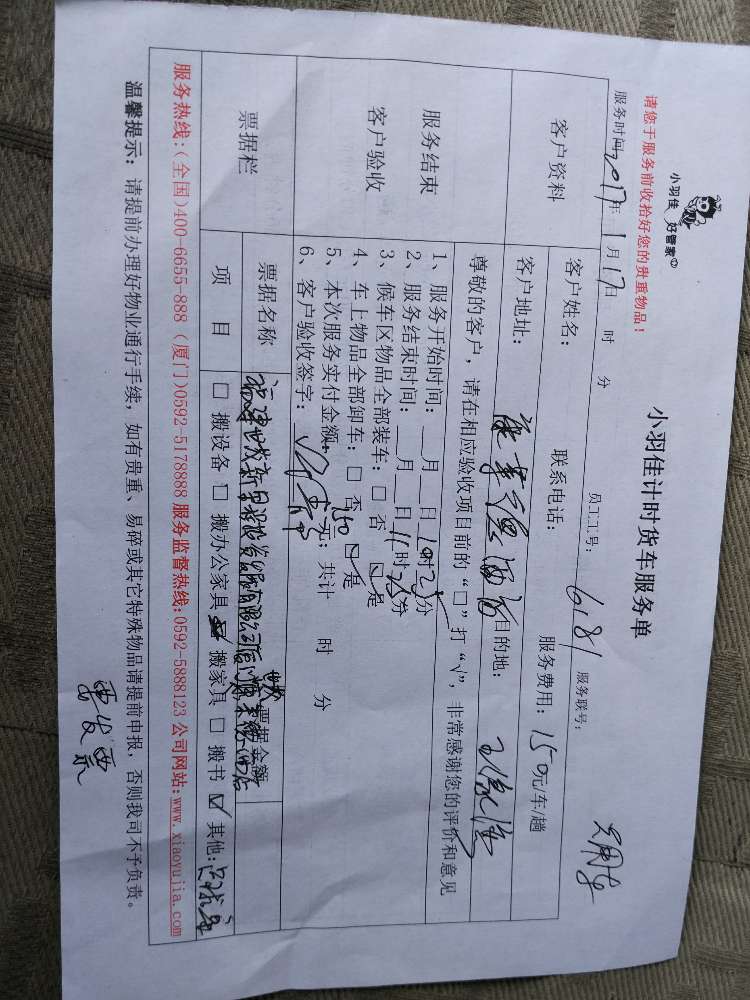 小羽佳 好管家
小羽佳计时货车服务单
请您于服务前收拾好您的贵重物品！
服务时间2017年1月17日 时 分 员工工号：6181 服务联号：
客户资料
客户姓名： 联系电话： 服务费用：150元/车/趟
客户地址： 酒店 目的地：
服务结束
客户验收
尊敬的客户，请在相应验收项目前的“□”打“√”，非常感谢您的评价和意见
1、服务开始时间：__月__日10时25分
2、服务结束时间：__月__日11时25分
3、候车区物品全部装车：□ 否 ☑是
4、车上物品全部卸车：□ 否 ☑是
5、本次服务实付金额：150元；共计 时 分
6、客户验收签字：
票据栏
票据名称 票据金额
项 目 □ 搬设备 □ 搬办公家具 ☑ 搬家具 □ 搬书 ☑ 其他：
服务热线：(全国)400-6655-888 (厦门)0592-5178888 服务监督热线：0592-5888123 公司网站：www.xiaoyujia.com
温馨提示：请提前办理好物业通行手续，如有贵重、易碎或其它特殊物品请提前申报，否则我司不予负责。
要发票